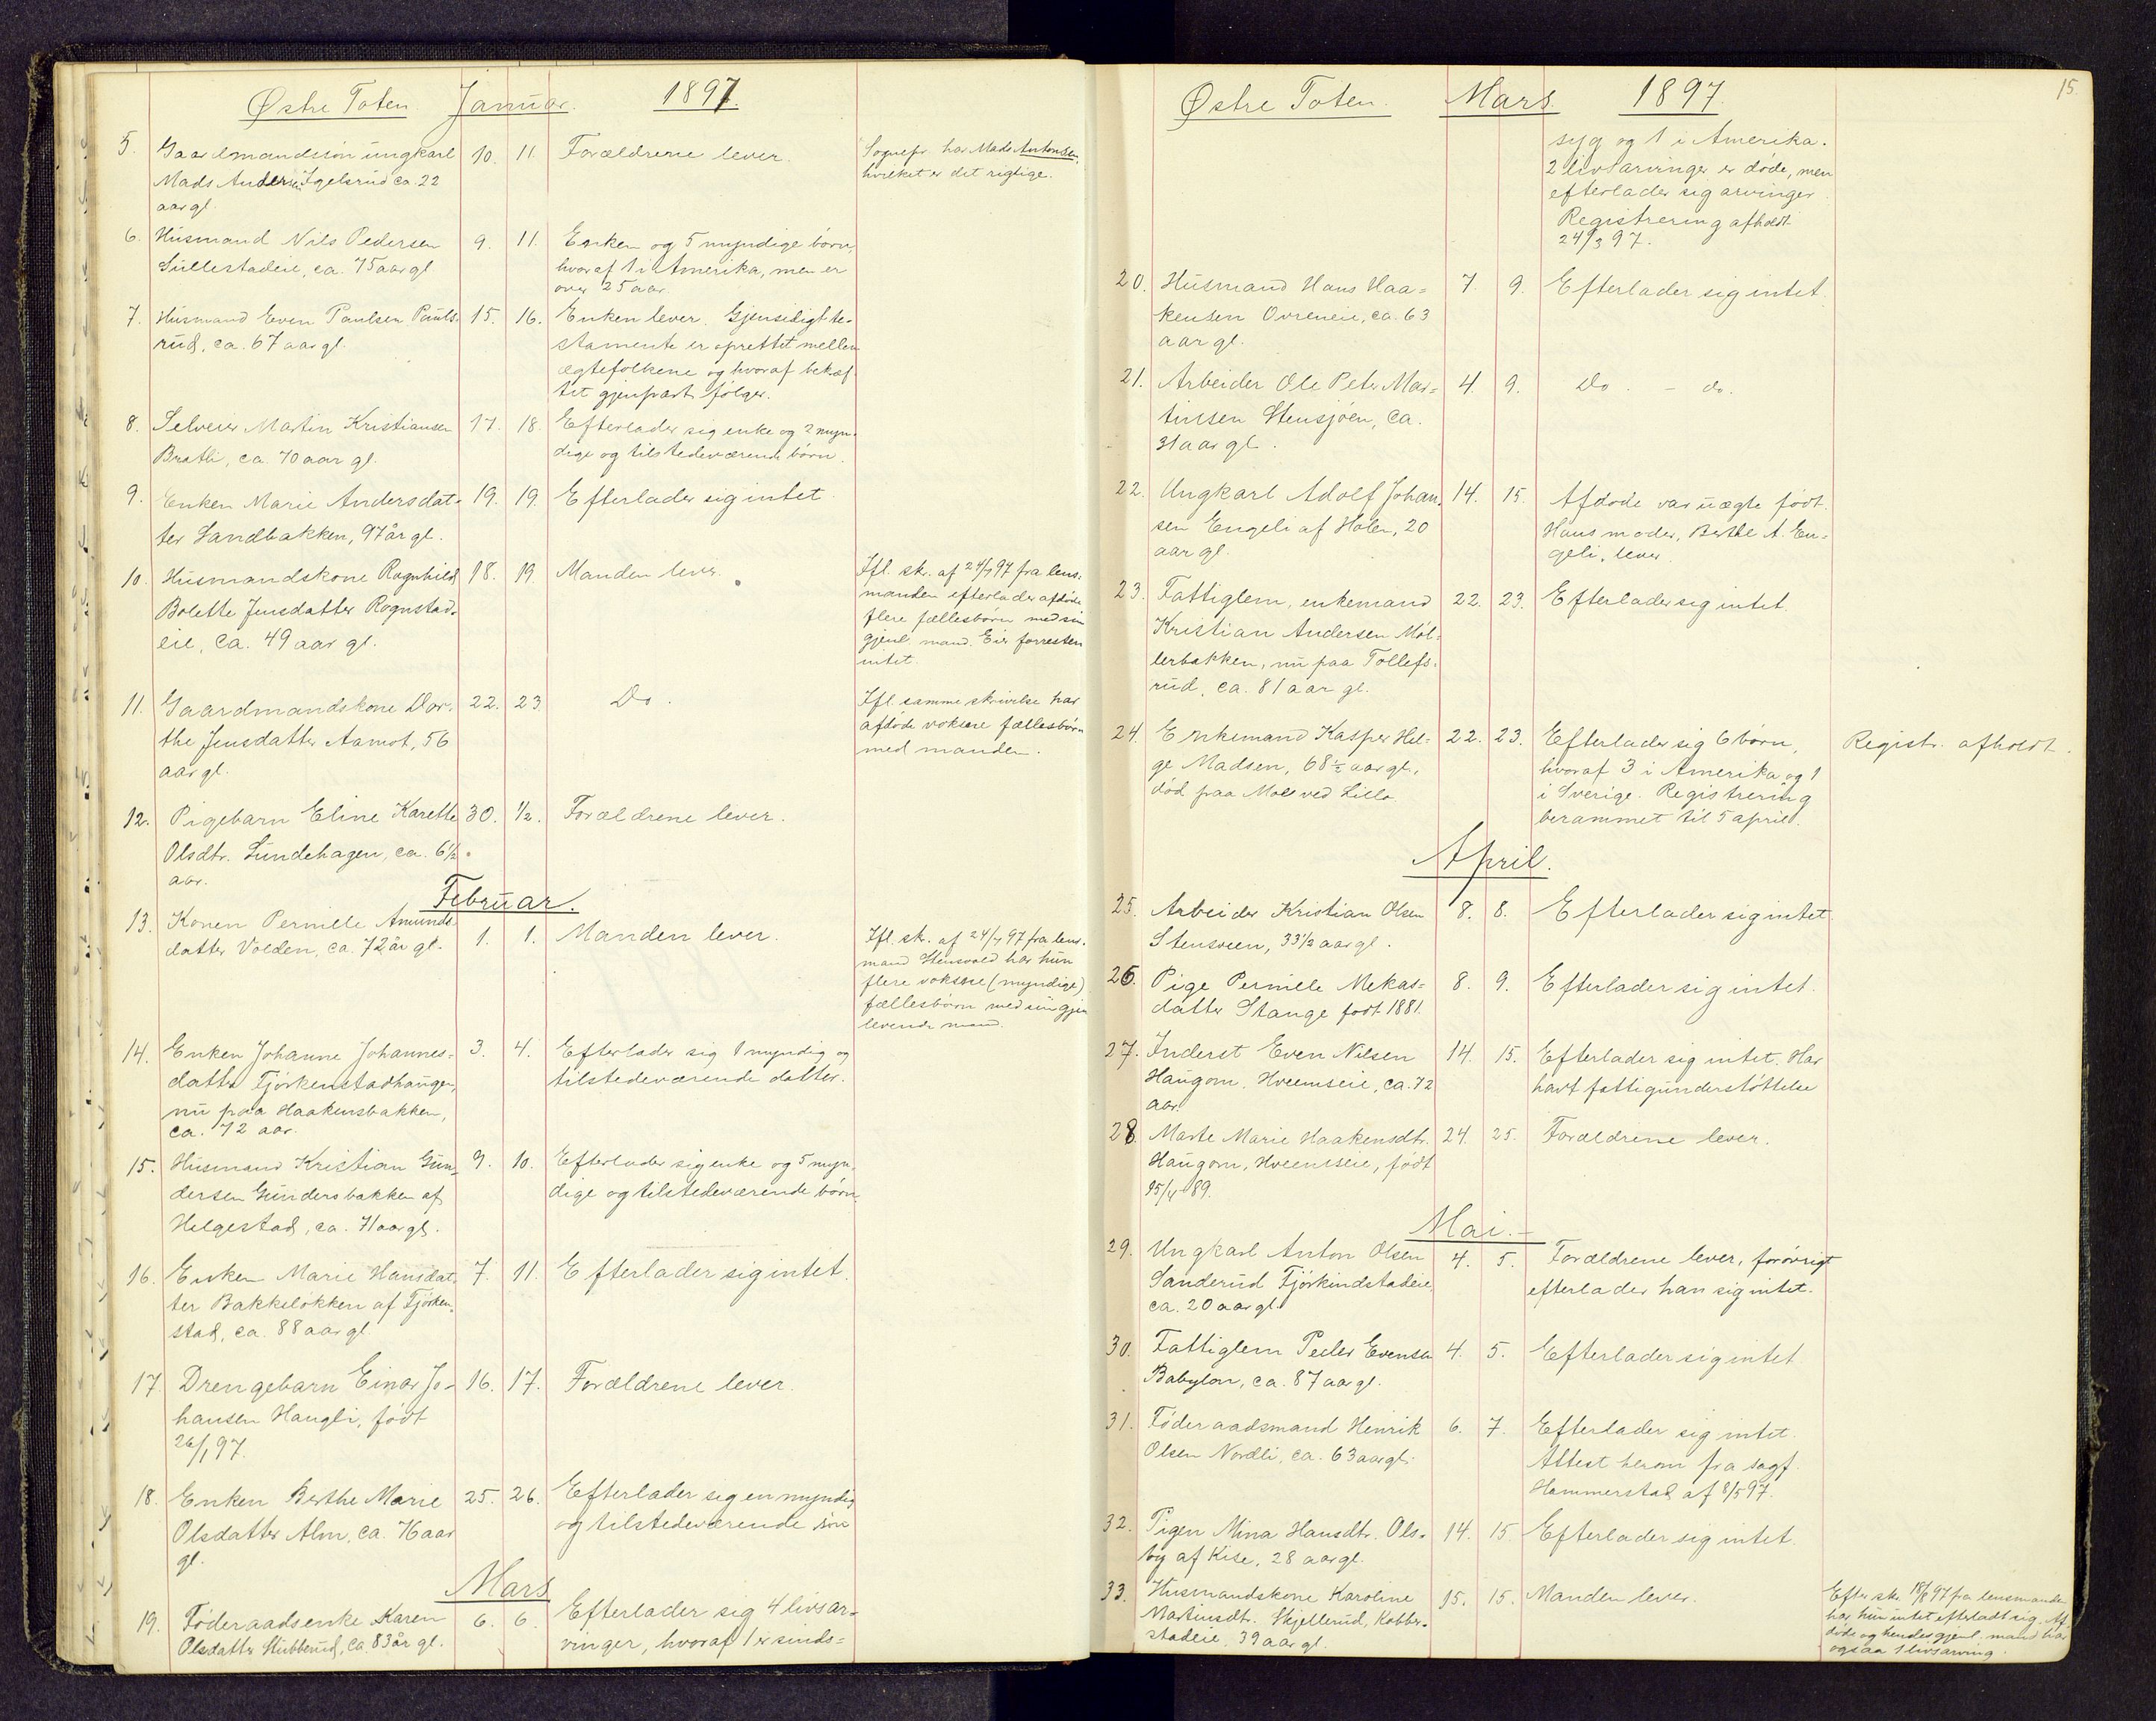 Østre Toten Januar. 1897.
5. Gaardmandssøn ungkarl 10. 11. Forældrene lever. Sognepr. har Mads Antonsen,
Mads Andersen Igelsrud ca. 22 hvilket er det rigtige.
aar gl.
6. Husmand Nils Pedersen 9. 11. Enken og 5 myndige børn,
Sullestadeie, ca. 75 aar gl hvoraf 1 i Amerika, men er
over 25 aar.
7. Husmand Even Paulsen Pauls- 15. 16. Enken lever. Gjensidigt te-
rud, ca. 67 aar gl. stamente er oprettet mellem
ægtefolkene og hvoraf bekræf-
tet gjenpart følger.
8. Selveier Martin Kristiansen 17. 18. Efterlader sig enke og 2 myn-
Bratli, ca. 70 aar gl. dige og tilstedeværende børn.
9. Enken Marie Andersdat- 19. 19. Efterlader sig intet.
ter Sandbakken, 97 år gl.
10. Husmandskone Ragnhild 18. 19. Manden lever. Ifl. skr. af 24/4 97 fra lens-
Bolette Jensdatter Rognstad- manden efterlader afdøde
eie, ca. 49 aar gl. flere fællesbørn med sin
gjenl. mand. Eier forresten
intet.
11. Gaardmandskone Dor- 22. 23. Do. Ifl. samme skrivelse har
the Jensdatter Aamot, 56 afdøde voksne fællesbørn
aar gl. med manden.
12. Pigebarn Eline Karette 30. 1/2. Forældrene lever.
Olsdtr. Lundehagen, ca. 6 1/2
aar.
Februar.
13. Konen Pernille Amunds- 1. 1. Manden lever. Ifl. skr. af 24/4 97 fra lens-
datter Volden, ca. 72 år gl. mand Stensvold har hun
flere voksne (myndige)
fællesbørn med sin gjen
levende mand.
14. Enken Johanne Johannes- 3. 4. Efterlader sig 1 myndig og
datter Fjørkenstadhaugen, tilstedeværende datter.
nu paa Haakensbakken,
ca. 72 aar.
15. Husmand Kristian Gun- 9. 10. Efterlader sig enke og 5 myn-
dersen Gundersbakken af dige og tilstedeværende børn.
Helgestad, ca. 71 aar gl.
16. Enken Marie Hansdat- 7. 11. Efterlader sig intet.
ter Bakkeløkken af Fjørken-
stad, ca. 88 aar gl
17. Drengebarn Einar Jo- 16. 17. Forældrene lever.
hansen Haugli, født
26/1 97.
18. Enken Berthe Marie 25. 26. Efterlader sig en myndig
Olsdatter Alm, ca. 76 aar og tilstedeværende søn
gl.
Mars
19. Føderaadsenke Karen 6. 6. Efterlader sig 4 livsar-
Olsdatter Stubberud, ca. 83 år gl. vinger, hvoraf 1 er sinds-
Østre Toten. Mars 1897. 15.
syg og 1 i Amerika.
2 livsarvinger er døde, men
efterlader sig arvinger.
Registrering afholdt
24/3 97.
20. Husmand Hans Haa- 7. 9. Efterlader sig intet.
kensen Ovreneie, ca. 63
aar gl.
21. Arbeider Ole Peter Mar- 4. 9. Do. - do.
tinsen Stensjøen, ca.
31 aar gl.
22. Ungkarl Adolf Johan- 14. 15. Afdøde var uægte født.
sen Engeli af Holen, 20 Hans moder, Berthe A. En-
aar gl. geli, lever
23. Fattiglem, enkemand 22. 23. Efterlader sig intet.
Kristian Andersen Møl-
lerbakken, nu paa Tollefs-
rud, ca. 81 aar gl.
24. Enkemand Kasper Hel- 22. 23. Efterlader sig 6 børn, Registr. afholdt.
ge Madsen, 68 1/2 aar gl., hvoraf 3 i Amerika og 1
død paa Moll ved Lillo i Sverige. Registrering
berammet til 5 april.
April.
25. Arbeider Kristian Olsen 8. 8. Efterlader sig intet
Stensveen, 33 1/2 aar gl.
26. Pige Pernille Mekas- 8. 9. Efterlader sig intet.
datter Stange født 1881.
27. Inderst Even Nilsen 14. 15. Efterlader sig intet. Har
Haugom, Hveemseie, ca. 72 havt fattigunderstøttelse
aar.
28. Marte Marie Haakensdtr. 24. 25. Forældrene lever.
Haugom, Hveemseie, født
25/4 89.
Mai.
29. Ungkarl Anton Olsen 4. 5. Forældrene lever, forøvrigt
Sanderud Fjørkindstadeie, efterlader han sig intet.
ca. 20 aar gl.
30. Fattiglem Peder Evensen 4. 5. Efterlader sig intet
Babylon, ca. 87 aar gl.
31. Føderaadsmand Henrik 6. 7. Efterlader sig intet.
Olsen Nordli, ca. 63 aar gl. Attest herom fra sagf.
Hammerstad af 8/5 97.
32. Pigen Mina Hansdtr. Ols- 14. 15 Efterlader sig intet.
by af Kise, 28 aar gl.
33. Husmandskone Karoline 15. 15. Manden lever. Efter skr. 18/6 97 fra lensmanden
Martinsdtr. Skjellerud, Kobber- har hun intet efterladt sig. Af-
stadeie, 39 aar gl. døde og hendes gjenl. mand har
ogsaa 1 livsarving.